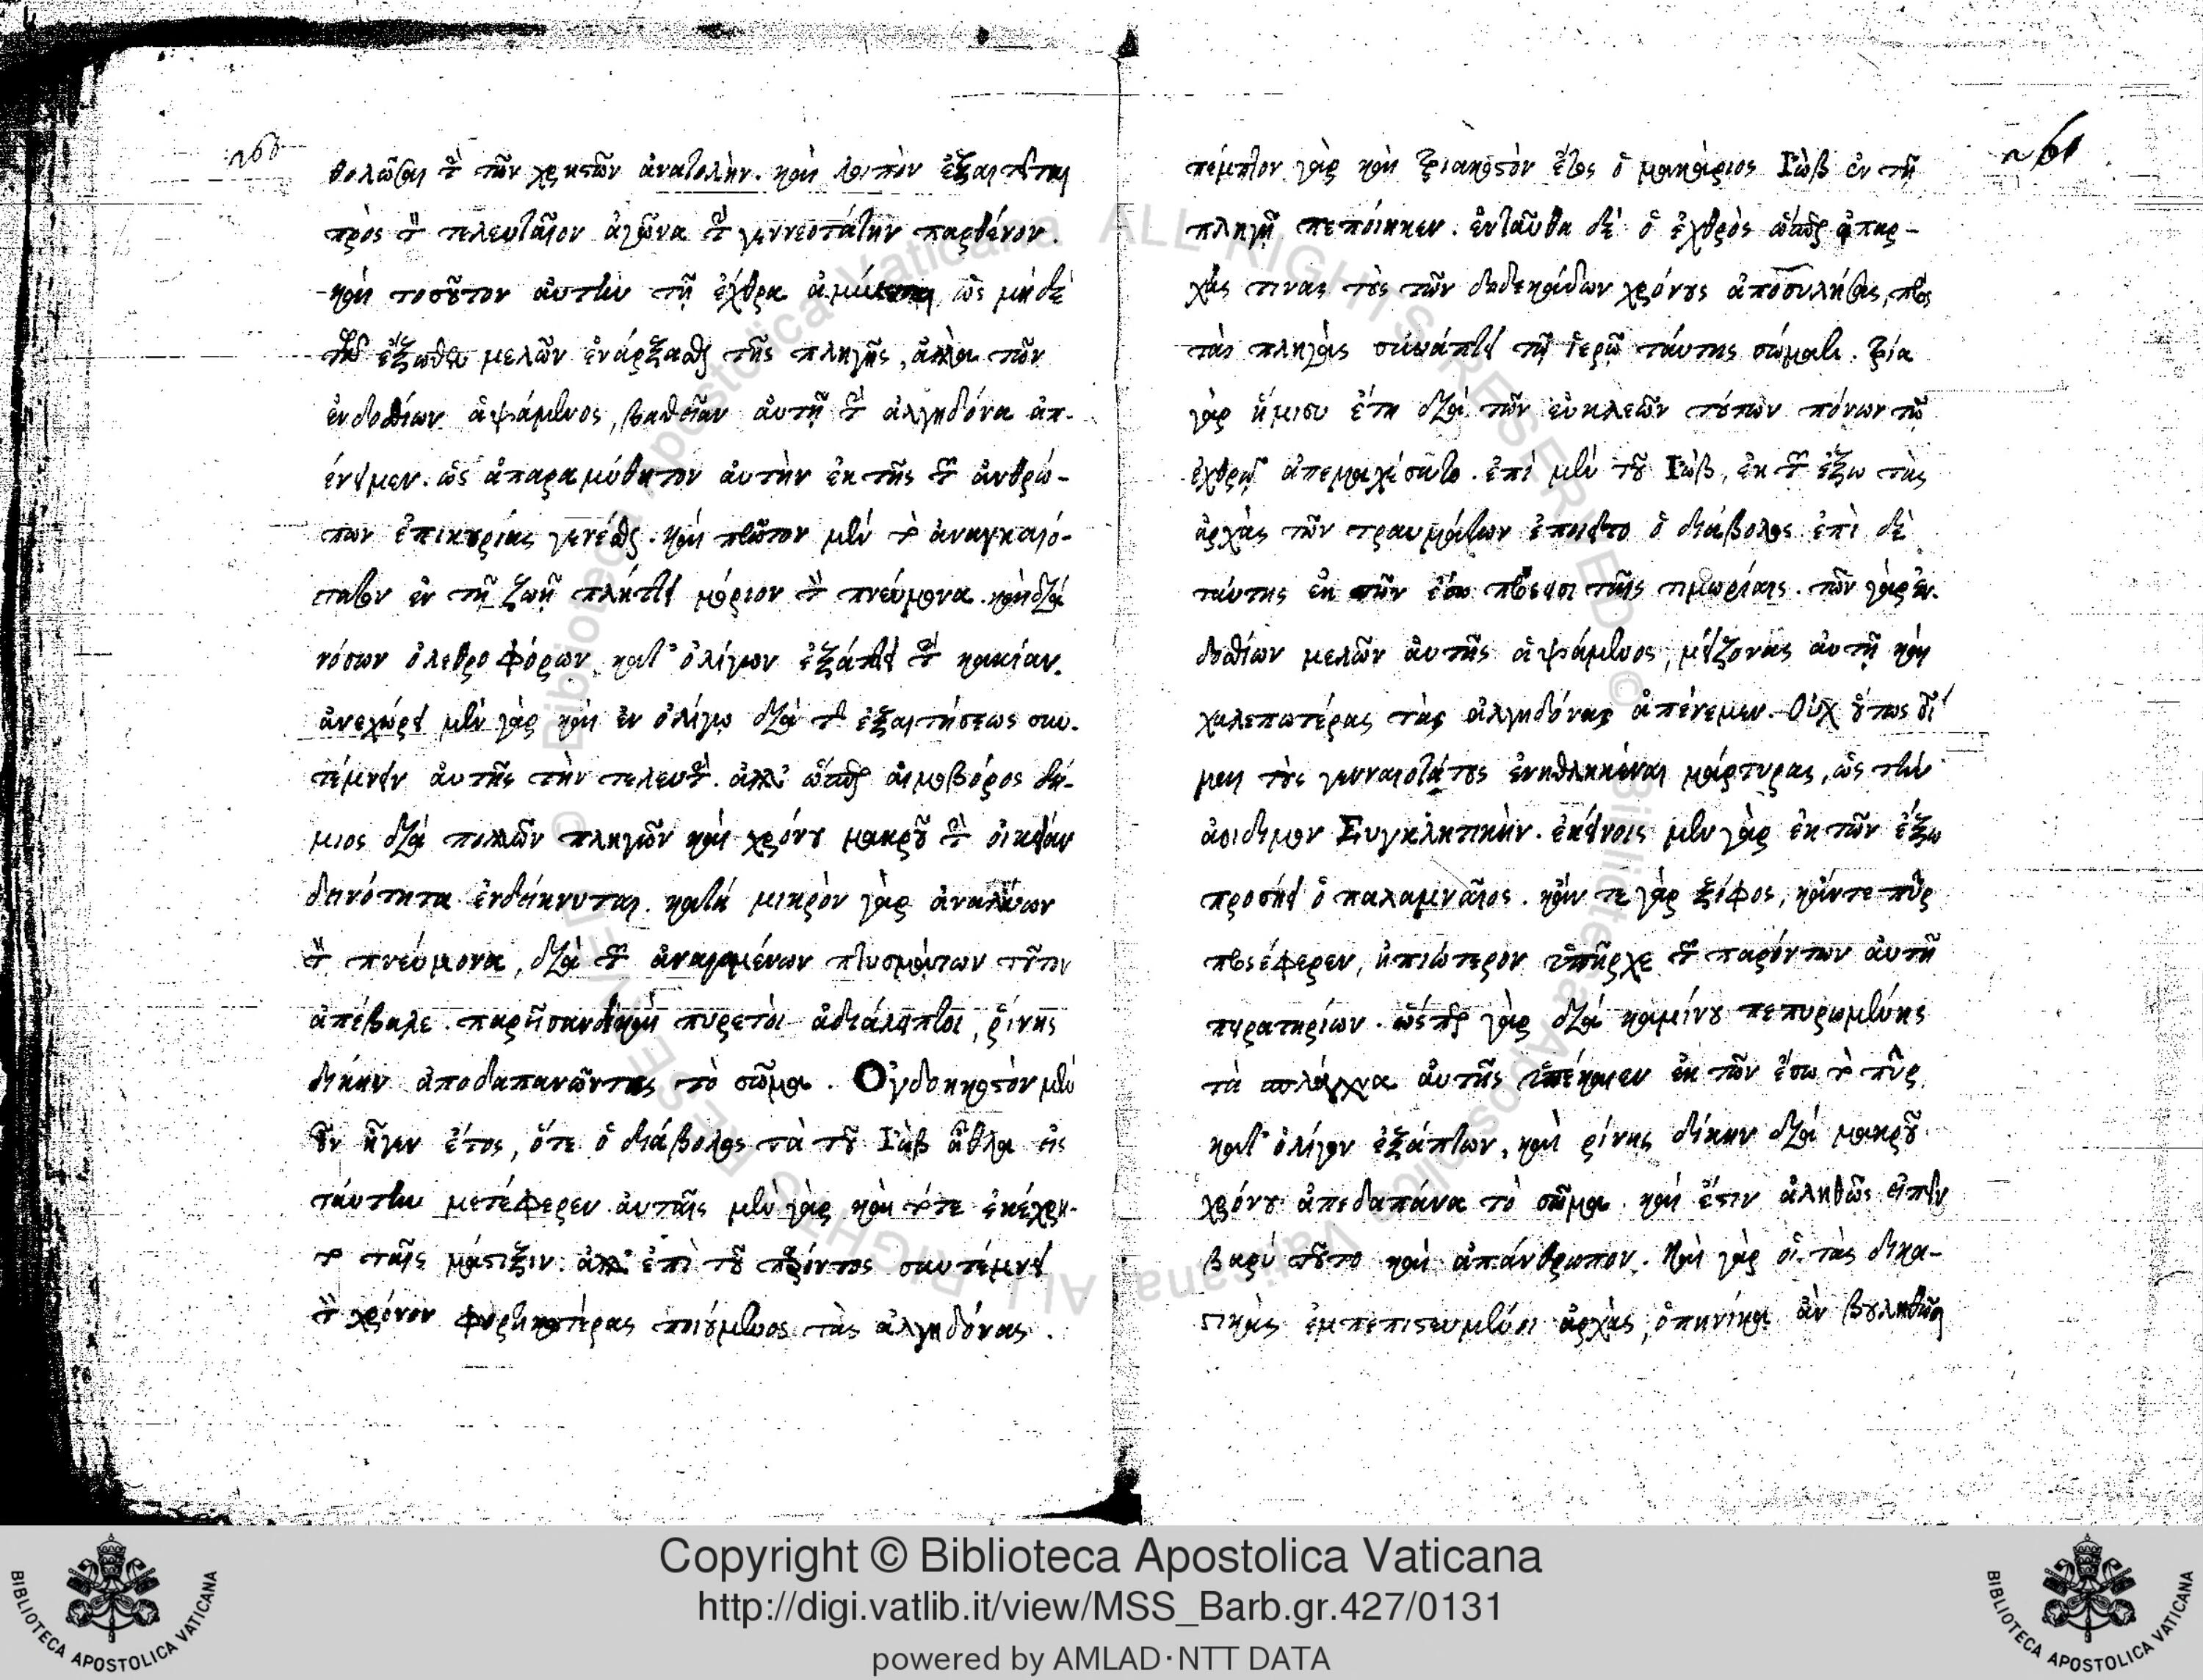 θολῶσαι τὴν τῶν χρηστῶν ἀνατολὴν. καὶ λοιπὸν ἐξαιτεῖται
πρὸς τὸν τελευταῖον ἀγῶνα τὴν γεννεοτάτην παρθένον.
καὶ τοσοῦτον αὐτὴν τῇ ἔχθρα ὡς μὴ δὲ
τῶν ἔξωθεν μελῶν ἐνάρξασθαι τῆς πληγῆς, ἀλλα τῶν
ἐνδοθίων ἁψάμενος, βαθεῖαν αὐτῇ τὴν ἀλγηδόνα ἀπ-
ένεμεν. ὡς ἀπαραμύθητον αὐτὴν ἐκ τῆς τῶν ἀνθρώ-
πων ἐπικουρίας γενέσθαι. καὶ πρῶτον μὲν τὸ ἀναγκαιό-
τατον ἐν τῇ ζωῇ πλήττει μόριον τὸν πνεύμονα. καὶ διὰ
νόσων ὀλεθροφόρων κατ' ὀλίγων ἐξάπτει τὴν κακίαν.
ἀνεχώρει μὲν γὰρ καὶ ἐν ὀλίγῳ διὰ τῆς ἐξαιτήσεως συν-
τέμνειν αὐτῆς τὴν τελευτὴν. ἀλλ' ὥσπερ αἱμοβόρος δή-
μιος διὰ πολλῶν πληγῶν καὶ χρόνου μακροῦ τὴν οἰκείαν
δεινότητα ἐνδείκνυται. κατὰ μικρὸν γὰρ ἀναλύων
τὸν πνεύμονα, διὰ τῶν ἀναγομένων πτυσμάτων τοῦτον
ἀπέβαλε. παρῆσαν δὲ καὶ πυρετοὶ ἀδιάλειπτοι, ῥίνης
δίκην ἀποδαπανῶντες τὸ σῶμα. Ὀγδοηκοστὸν μὲν
οὖν ἦγεν ἔτος, ὅτε ὁ διάβολος τὰ τοῦ Ἰὼβ ἆθλα εἰς
ταύτην μετέφερεν αὐταῖς μὲν γὰρ καὶ τότε ἐκέχρη-
το ταῖς μάστιξιν. ἀλλ' ἐπὶ τοῦ παρόντος συντέμνει
τὸν χρόνον φορτικοτέρας ποιούμενος τὰς ἀλγηδόνας.
πέμπτον γὰρ καὶ τριακοστὸν ἔτος ὁ μακάριος Ἰὼβ ἐν τῇ
πληγῇ πεποίηκεν. ἐνταῦθα δὲ ὁ ἐχθρὸς ὥσπερ ἀπαρ-
χάς τινας τοὺς τῶν δεκάδων χρόνους ἀποσυλήσας, πρὸς
τὰς πληγὰς συνάπτει τῷ ἱερῷ ταύτης σώματι. τρία
γὰρ ἥμισυ ἔτη διὰ τῶν εὐκλεῶν τούτων πόνων τῷ
ἐχθρῷ ἀπεμαχέσατο. ἐπὶ μὲν τοῦ Ἰὼβ, ἐκ τῶν ἔξω τὰς
ἀρχὰς τῶν τραυμάτων ἐποιεῖτο ὁ διάβολος ἐπὶ δὲ
ταύτης ἐκ τῶν ἔσω ταῖς τιμωρίαις. τῶν γὰρ ἐν-
δοθίων μελῶν αὐτῆς ἁψάμενος, μείζονας αὐτῇ καὶ
χαλεπωτέρας τὰς ἀλγηδόνας ἀπένεμεν. Οὐχ οὕτως οἶ-
μαι τοὺς γενναιοτάτους ἐνηθληκέναι μάρτυρας, ὡς τὴν
ἀοίδιμον Συγκλητικὴν. ἐκείνοις μὲν γὰρ ἐκ τῶν ἔξω
προσήει ὁ παλαμναῖος. κἄν τε γὰρ ξίφος, κἄν τε πῦρ
προσέφερεν, ἠπιώτερον ὑπῆρχε τῶν παρόντων αὐτῇ
πειρατηρίων. ὥσπερ γὰρ διὰ καμίνου πεπυρωμένης
τὰ σπλάγχνα αὐτῆς ὑπέκαιεν ἐκ τῶν ἔσω τὸ πῦρ
κατ' ὀλίγον ἐξάπτων, καὶ ρίνης δίκην διὰ μακροῦ
χρόνου ἀπεδαπάνα τὸ σῶμα. καὶ ἔστιν ἀληθῶς εἰπεῖν
βαρύ τοῦτο καὶ ἀπάνθρωπον. Καὶ γὰρ οἱ τὰς δικα-
στικὰς ἐμπεπιστευμένοι ἀρχὰς, ὁπηνίκα ἂν βουληθῶσι
Copyright © Biblioteca Apostolica Vaticana
http://digi.vatlib.it/view/MSS_Barb.gr.427/0131
powered by AMLAD·NTT DATA
BIBLIOTECA APOSTOLICA VATICANA
BIBLIOTECA APOSTOLICA VATICANA